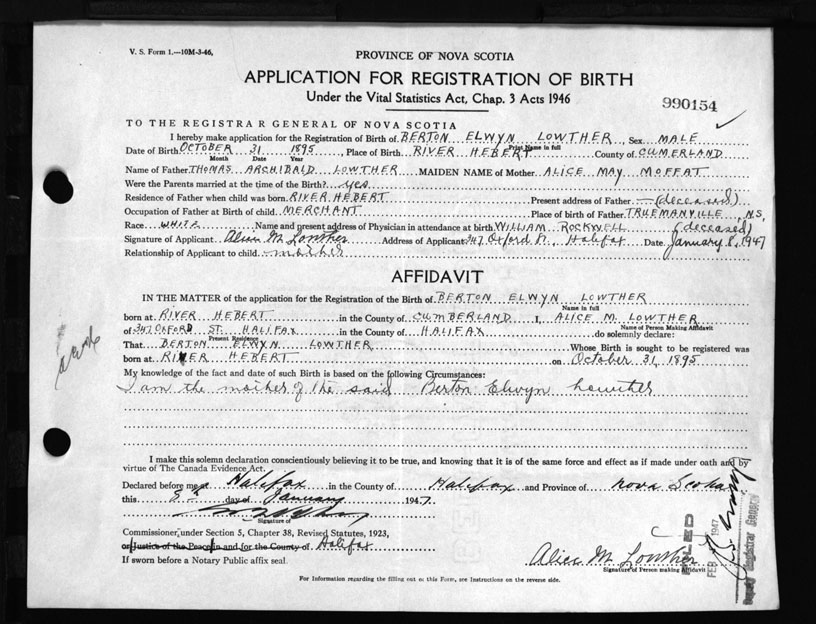 V. S. Form 1.—10M-3-46.
PROVINCE OF NOVA SCOTIA
APPLICATION FOR REGISTRATION OF BIRTH
Under the Vital Statistics Act, Chap. 3 Acts 1946
990154
TO THE REGISTRAR GENERAL OF NOVA SCOTIA
I hereby make application for the Registration of Birth of BERTON ELWYN LOWTHER, Sex MALE
Print Name in full
Date of Birth OCTOBER 31 1895, Place of Birth RIVER HEBERT County of CUMERLAND
Month Date Year
Name of Father THOMAS ARCHIBALD LOWTHER MAIDEN NAME of Mother ALICE MAY MOFFAT
Were the Parents married at the time of the Birth? yes
Residence of Father when child was born RIVER HEBERT Present address of Father (deceased)
Occupation of Father at Birth of child MERCHANT Place of birth of Father TRUEMANVILLE, N.S.
Race WHITE Name and present address of Physician in attendance at birth WILLIAM ROCKWELL (deceased)
Signature of Applicant Alice M. Lowther Address of Applicant 347 Oxford St., Halifax Date January 8, 1947
Relationship of Applicant to child mother
AFFIDAVIT
IN THE MATTER of the application for the Registration of the Birth of BERTON ELWYN LOWTHER
Name in full
born at RIVER HEBERT in the County of CUMBERLAND I, ALICE M. LOWTHER
Name of Person Making Affidavit
of 347 OXFORD ST. HALIFAX in the County of HALIFAX do solemnly declare:
Present Residence
That BERTON ELWYN LOWTHER Whose Birth is sought to be registered was
born at RIVER HEBERT on October 31, 1895
My knowledge of the fact and date of such Birth is based on the following Circumstances:
I am the mother of the said Berton Elwyn Lowther
I make this solemn declaration conscientiously believing it to be true, and knowing that it is of the same force and effect as if made under oath and by
virtue of The Canada Evidence Act.
Declared before me at Halifax in the County of Halifax and Province of Nova Scotia
this 8th day of January 1947.
Signature of
Commissioner, under Section 5, Chapter 38, Revised Statutes, 1923,
or Justice of the Peace in and for the County of Halifax
If sworn before a Notary Public affix seal.
Alice M. Lowther
Signature of Person making Affidavit
FILED
FEB 1947
Deputy Registrar General
For Information regarding the filling out of this Form, see Instructions on the reverse side.